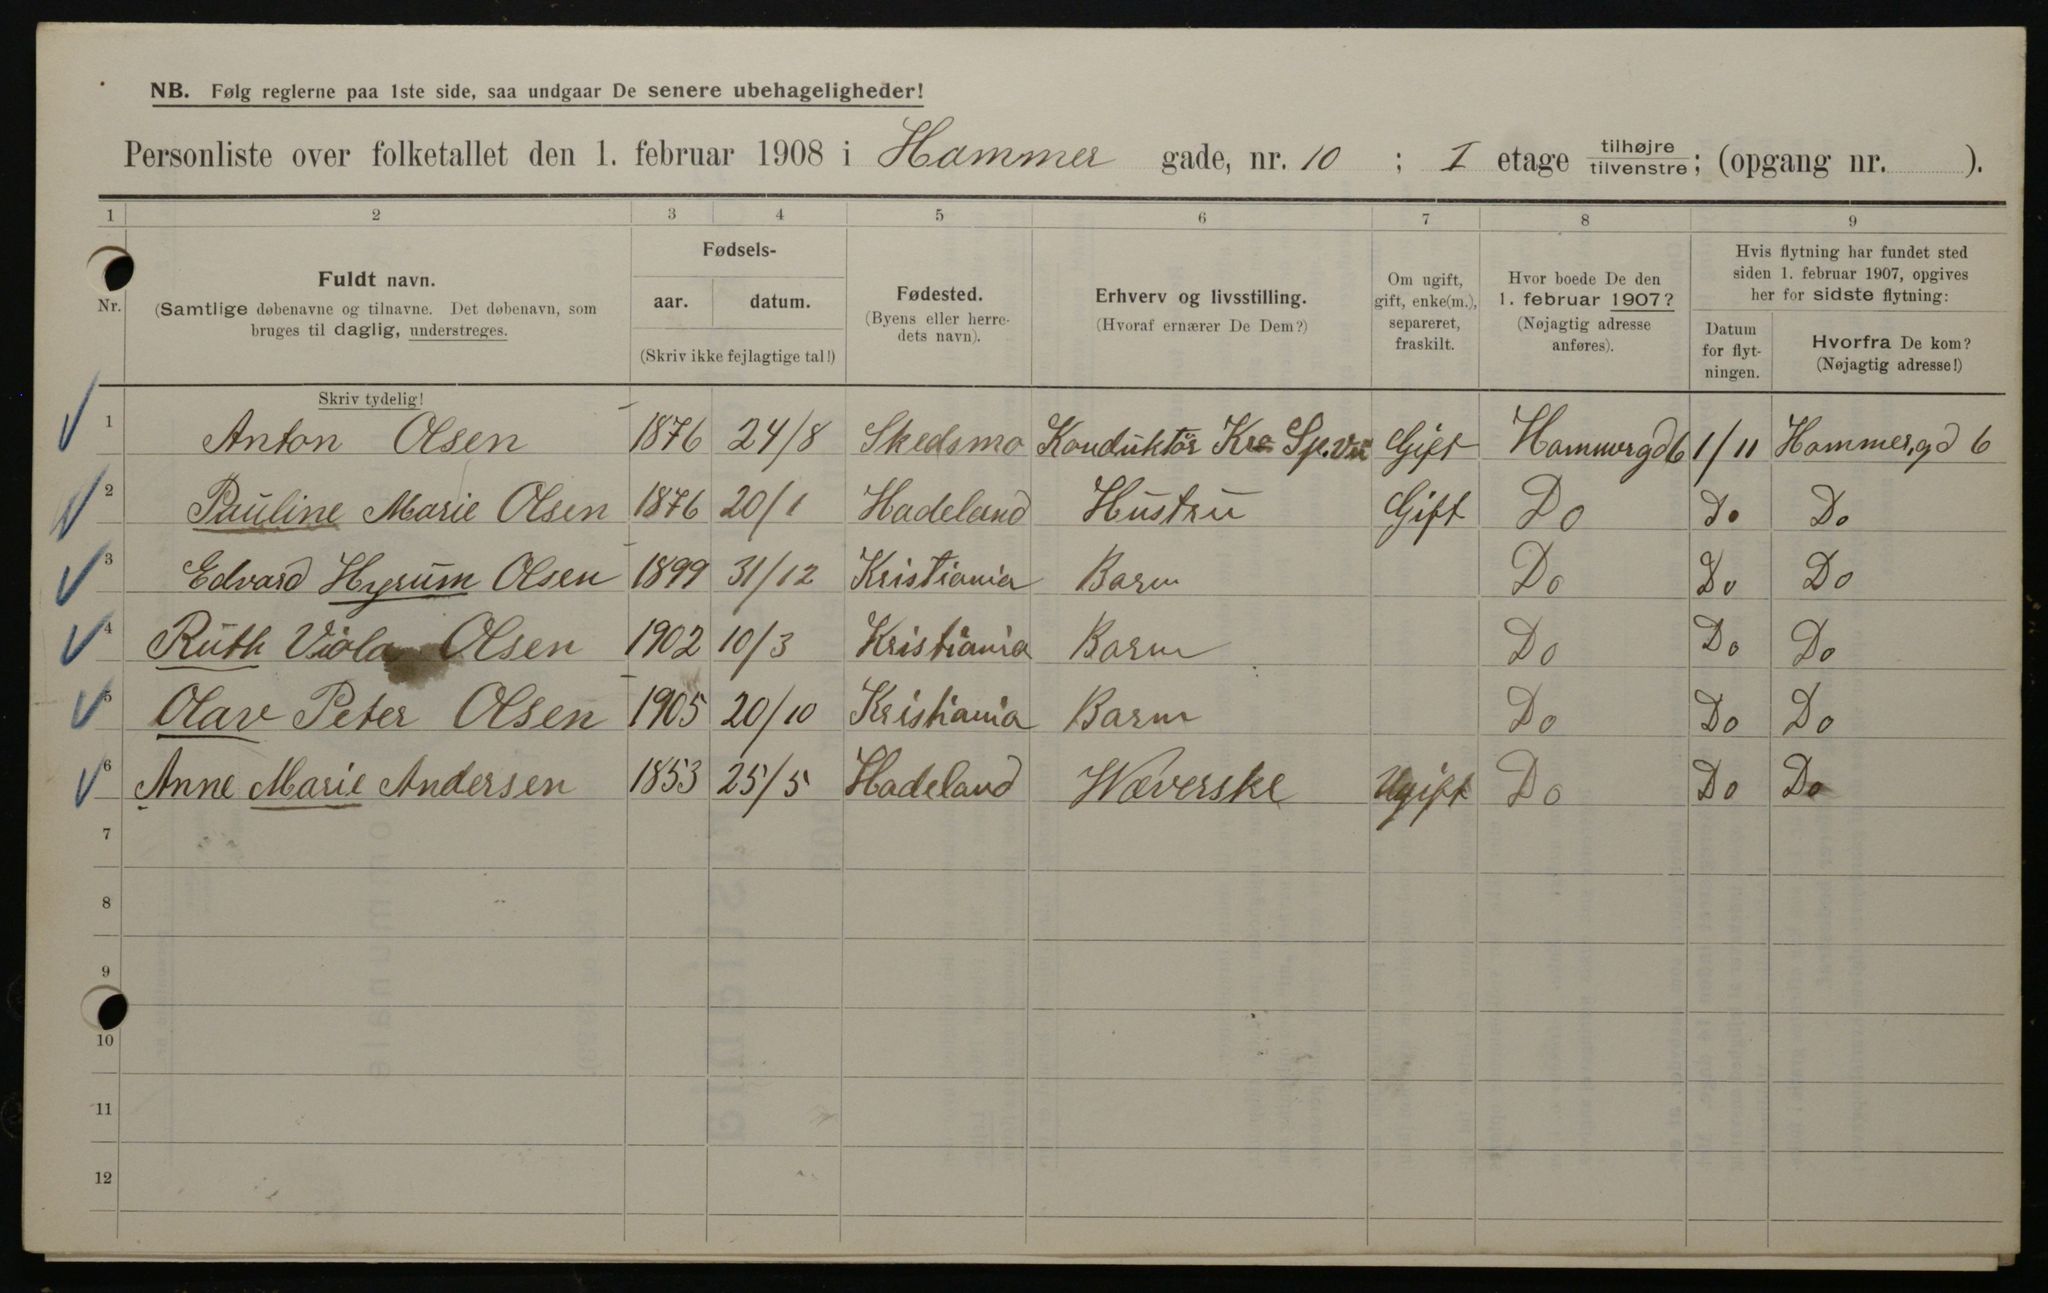 NB. Følg reglerne paa 1ste side, saa undgaar De senere ubehageligheder!
Personliste over folketallet den 1. februar 1908 i Hammer gade, nr. 10 ; I etage tilhøjre/tilvenstre; (opgang nr. ).
1 2 3 4 5 6 7 8 9
Nr.
Fuldt navn.
(Samtlige døbenavne og tilnavne. Det døbenavn, som
bruges til daglig, understreges.
Skriv tydelig!
Fødsels-
aar. datum.
(Skriv ikke fejlagtige tal!)
Fødested.
(Byens eller herre-
dets navn).
Erhverv og livsstilling.
(Hvoraf ernærer De Dem?)
Om ugift,
gift, enke(m.),
separeret,
fraskilt.
Hvor boede De den
1. februar 1907?
(Nøjagtig adresse
anføres).
Hvis flytning har fundet sted
siden 1. februar 1907, opgives
her for sidste flytning:
Datum
for flyt-
ningen.
Hvorfra De kom?
(Nøjagtig adresse!)
1 Anton Olsen 1876 24/8 Skedsmo Konduktör Kra Sp.v. Gift Hammergd 6 1/11 Hammer.gd 6
2 Pauline Marie Olsen 1876 20/1 Hadeland Hustru Gift Do Do Do
3 Edvard Hyrum Olsen 1899 31/12 Kristiania Barn Do Do Do
4 Ruth Viola Olsen 1902 10/3 Kristiania Barn Do Do Do
5 Olav Peter Olsen 1905 20/10 Kristiania Barn Do Do Do
6 Anne Marie Andersen 1853 25/5 Hadeland Wæverske Ugift Do Do Do
7
8
9
10
11
12